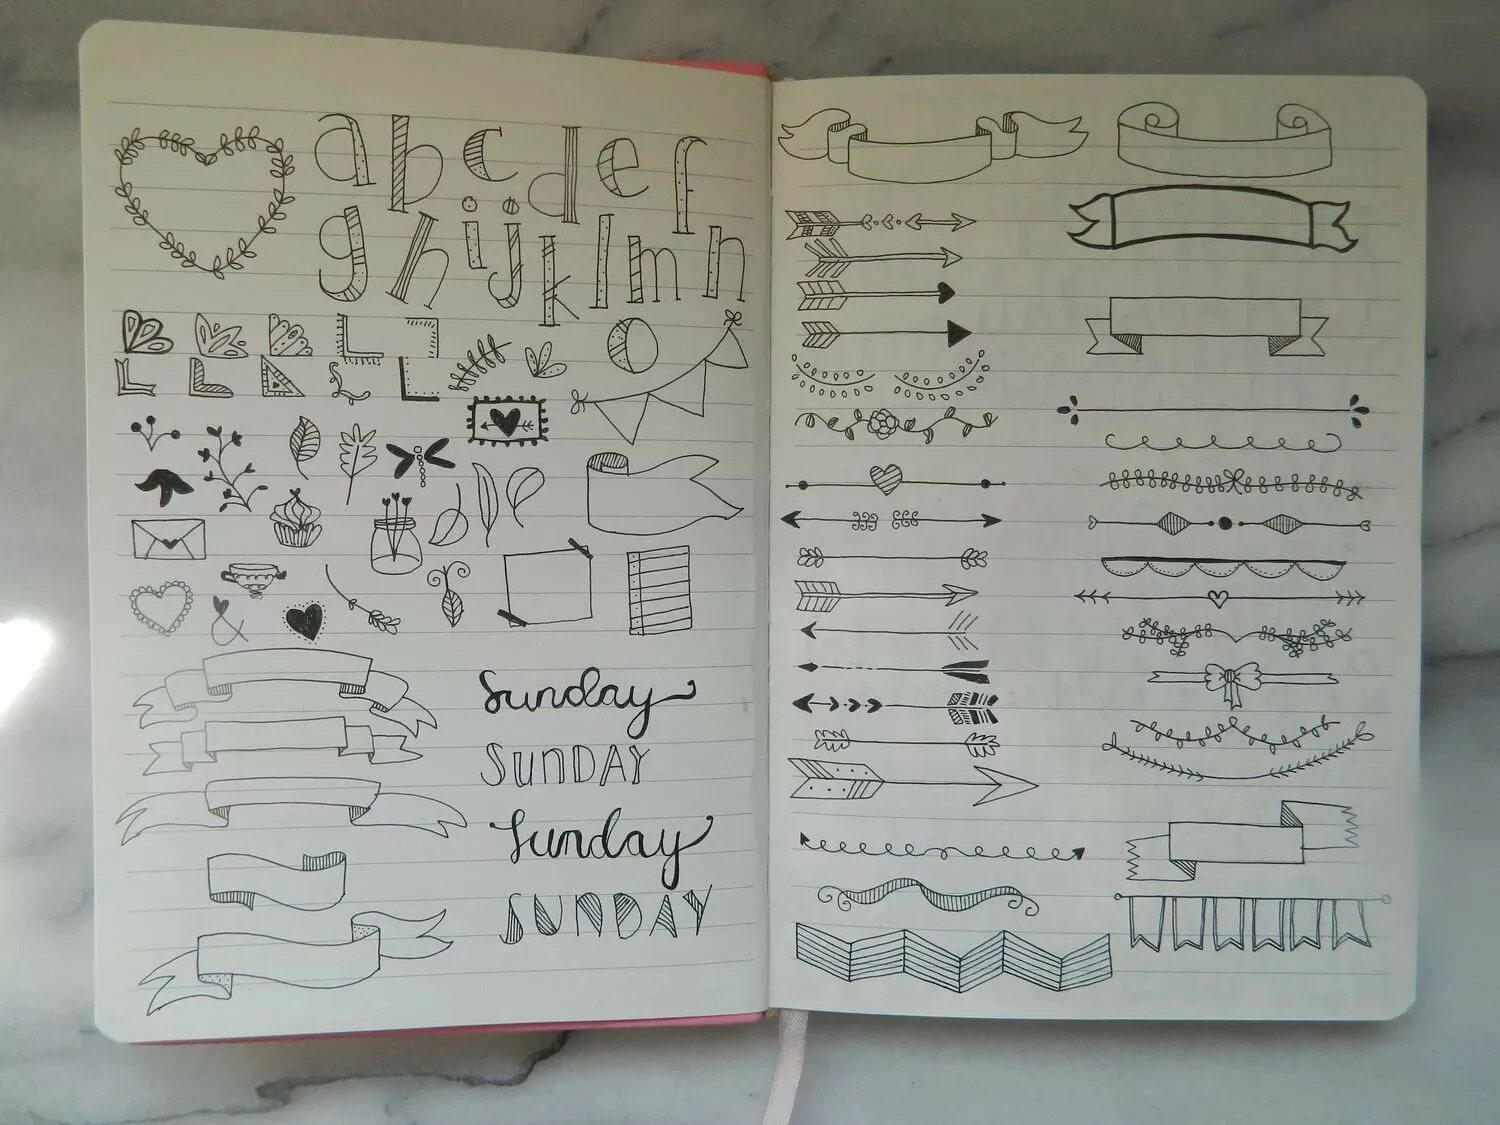 abcdef
ghijklmn
&
Sunday
SUNDAY
Sunday
SUNDAY